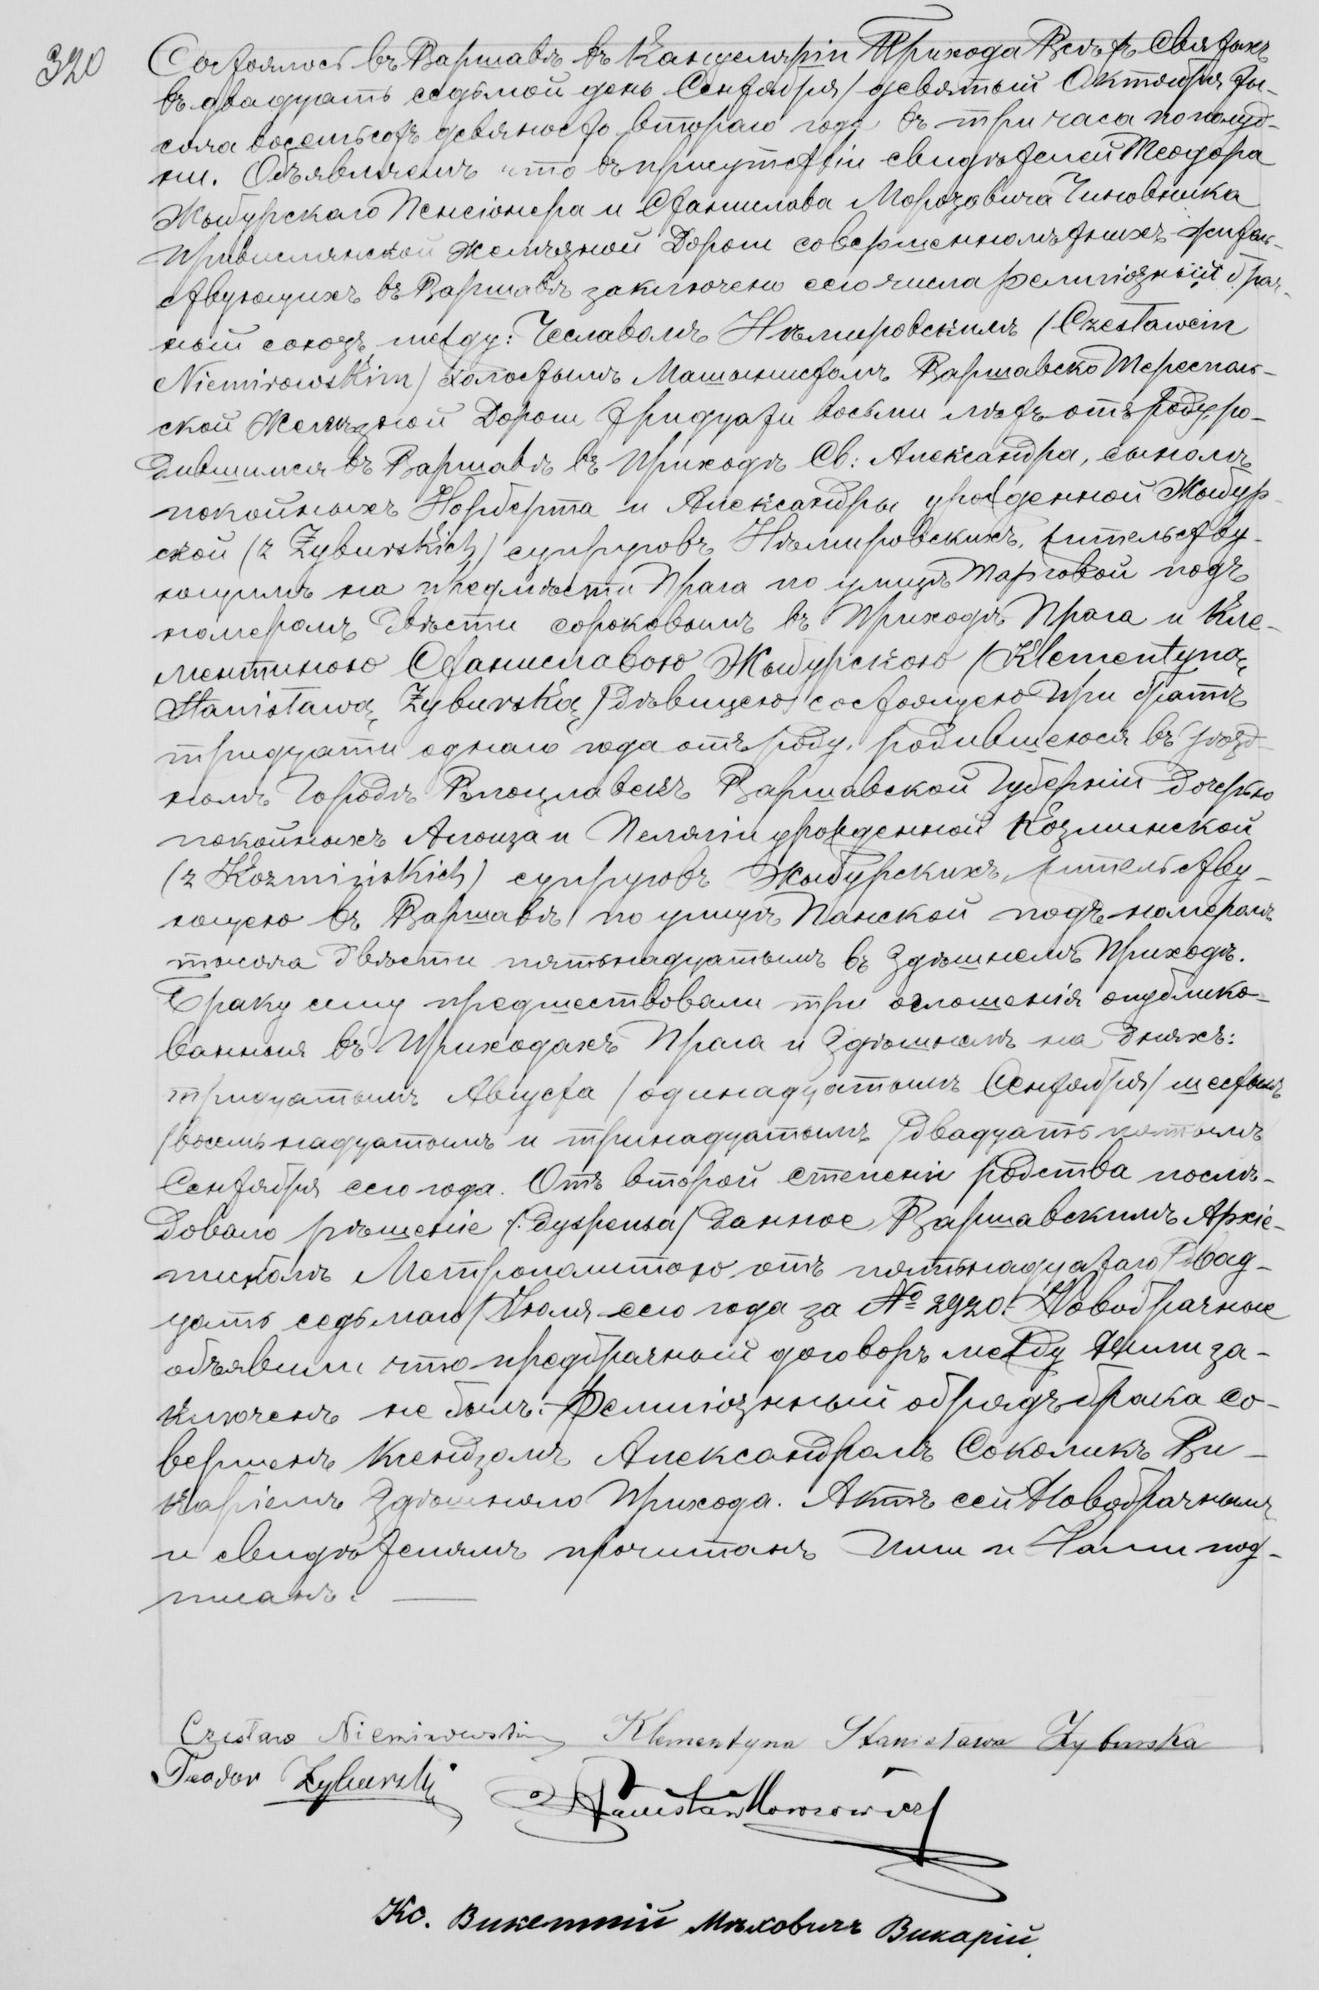 320
Состоялось въ Варшавѣ въ Канцеляріи Прихода Всѣхъ Святыхъ
въ двадцать седьмой день Сентября /девятый Октября/ ты-
сяча восемьсотъ девяносто втораго года въ три часа пополуд-
ни. Объявляемъ что въ присутствіи свидѣтелей Теодора
Жыбурскаго Пенсіонера и Станислава Морозовича Чиновника
Привислянской Желѣзной Дороги совершеннолѣтнихъ житель-
ствующихъ въ Варшавѣ заключенъ сего числа религіозный брач-
ный союзъ между: Чеславомъ Нѣмировскимъ /Czesławem
Niemirowskim/ холостымъ Машинистомъ Варшавско Тереспольс-
ской Желѣзной Дороги тридцати восьми лѣтъ отъ роду ро-
дившимся въ Варшавѣ въ Приходѣ Св: Александра, сыномъ
покойныхъ Норберта и Александры урожденной Жыбур-
ской (z Zyburskich) супруговъ Нѣмировскихъ, жительству-
ющимъ на предмѣстіи Прага по улицѣ Тарговой подъ
номеромъ двѣсти сороковымъ въ Приходѣ Прага и Кле-
ментиною Станиславою Жыбурскою /Klementyną
Stanisławą Zyburską/ дѣвицею состоящею при братѣ
тридцати одного года отъ роду, родившеюся въ уѣзд-
номъ Городѣ Влоцлавскѣ Варшавской Губерніи дочерью
покойныхъ Алоиза и Пелагіи урожденной Козминской
(z Kozmińskich) супруговъ Жыбурскихъ, жительству-
ющею въ Варшавѣ по улицѣ Панской подъ номеромъ
тысяча двѣсти пятьнадцатымъ въ здѣшнемъ Приходѣ.
Браку сему предшествовали три оглошенія опублико-
ванныя въ Приходахъ Прага и Здѣшнемъ на дняхъ:
тридцатымъ Августа /одинадцатымъ Сентября/ шестымъ
/восемьнадцатымъ и тринадцатымъ /двадцать пятымъ
Сентября сего года. Отъ второй степени родства послѣ-
довало рѣшеніе /: dyspensa/ данное Варшавскимъ Архіе-
пископомъ Метрополитою отъ пятьнадцатаго /двад-
цать седьмаго/ Іюля сего года за № 2920. Новобрачные
объявили что предбрачный договоръ между ними за-
ключенъ не былъ. Религіозный обрядъ брака со-
вершенъ Ксендзомъ Александромъ Соколикъ Ви-
каріемъ Здѣшняго Прихода. Актъ сей Новобрачнымъ
и свидѣтелямъ прочитанъ Ими и Нами под-
писанъ.
Czesław Niemirowski Klementyna Stanisława Zyburska
Teodor Zyburski Stanisław Morozowicz
Кс. Викентій Мѣховичъ Викарій.